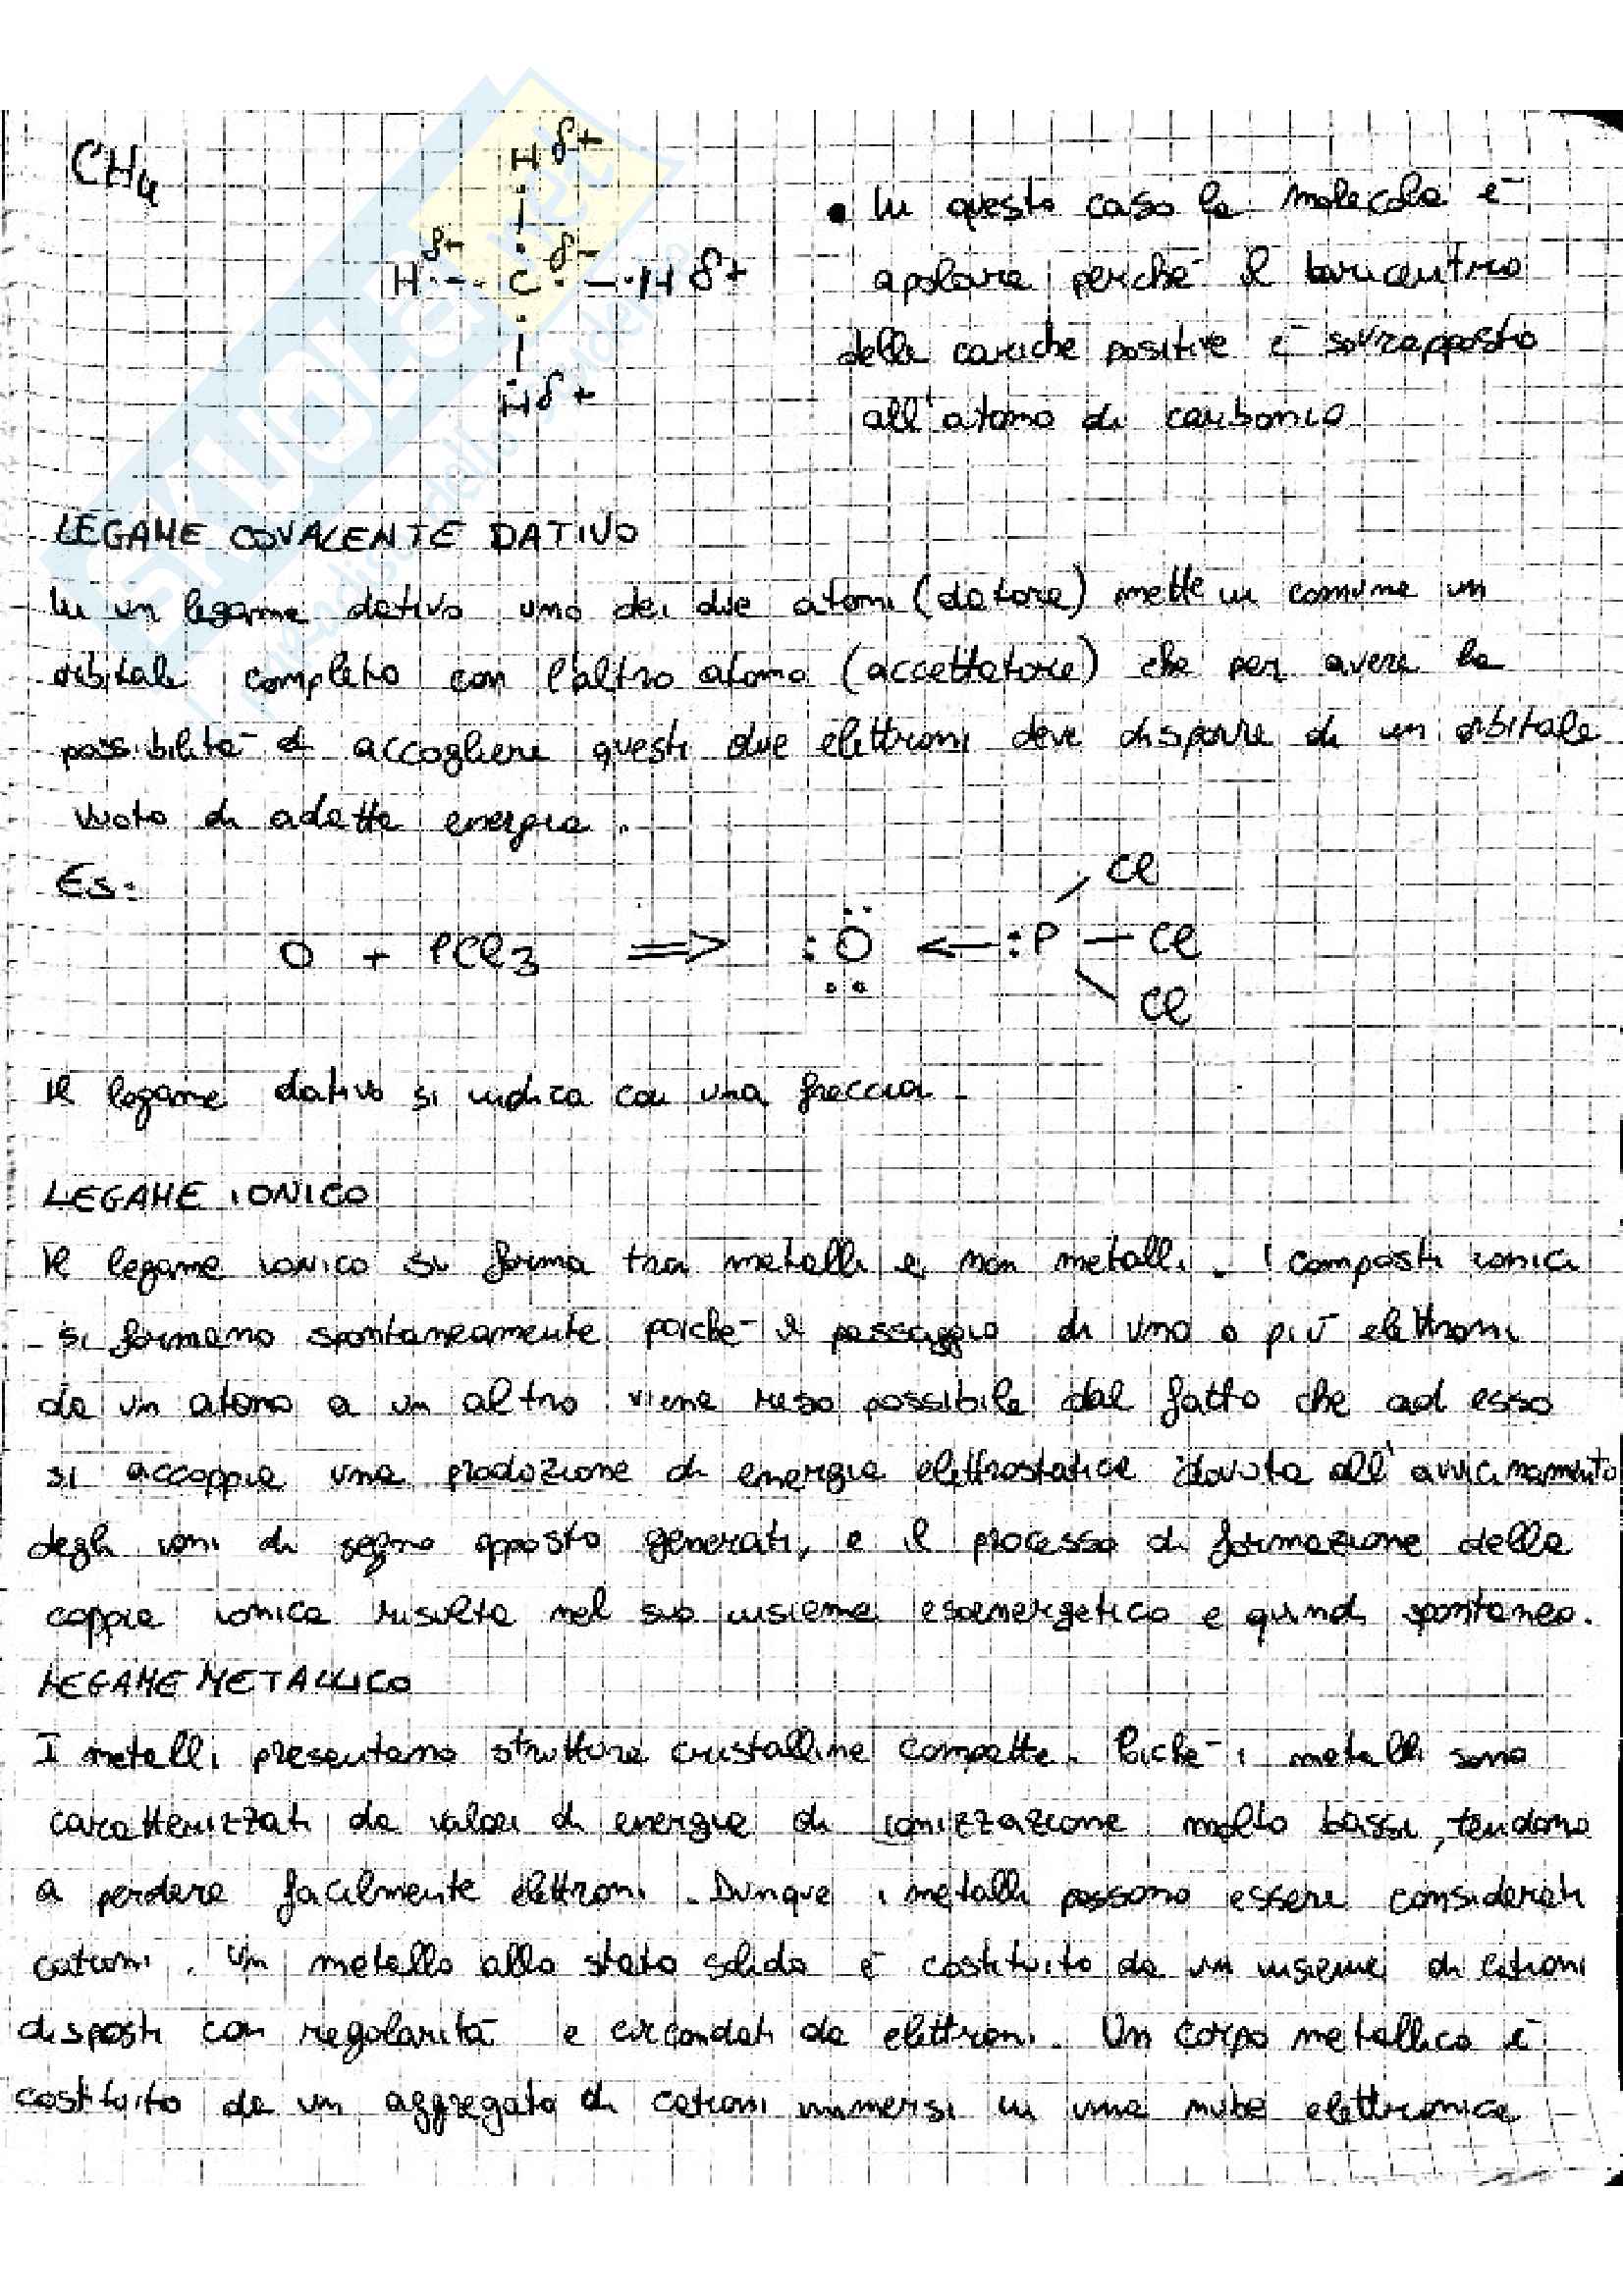 CH4
H δ+
δ+ δ-
H C H δ+
H δ+
• In questo caso la molecola è
apolare perché il baricentro
delle cariche positive è sovrapposto
all'atomo di carbonio
LEGAME COVALENTE DATIVO
In un legame dativo uno dei due atomi (datore) mette in comune un
orbitale completo con l'altro atomo (accettatore) che per avere la
possibilità di accogliere questi due elettroni deve disporre di un orbitale
vuoto di adatta energia.
Es:
O + PCl3 ⟹ :Ö ⟵ :P — Cl
Cl
Cl
Il legame dativo si indica con una freccia.
LEGAME IONICO
Il legame ionico si forma tra metalli e non metalli. I composti ionici
si formano spontaneamente poiché il passaggio di uno o più elettroni
da un atomo a un altro viene reso possibile dal fatto che ad esso
si accoppia una produzione di energia elettrostatica dovuta all'avvicinamento
degli ioni di segno opposto generati, e il processo di formazione della
coppia ionica risulta nel suo insieme esoenergetico e quindi spontaneo.
LEGAME METALLICO
I metalli presentano strutture cristalline compatte. Poiché i metalli sono
caratterizzati da valori di energia di ionizzazione molto bassi, tendono
a perdere facilmente elettroni. Dunque i metalli possono essere considerati
cationi. Un metallo allo stato solido è costituito da un insieme di cationi
disposti con regolarità e circondati da elettroni. Un corpo metallico è
costituito da un aggregato di cationi immersi in una nube elettronica
SKUOLA.net
il paradiso dello studente